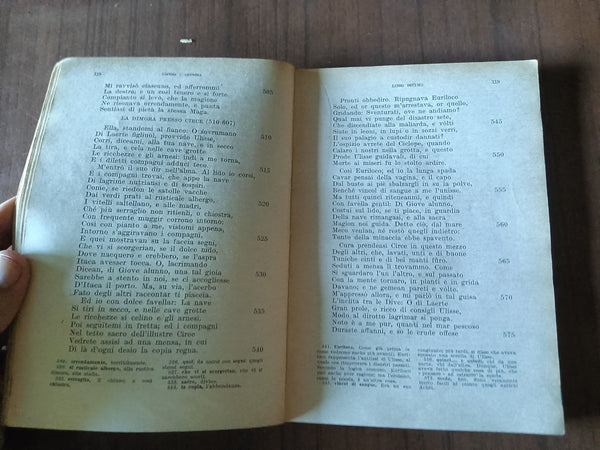 Mi ravvisò ciascuno, ed afferrommi
La destra; e un così tenero e sì forte 505
Compianto si levò, che la magione
Ne risonava orrendamente, e punta
Sentissi di pietà la stessa Maga.
LA DIMORA PRESSO CIRCE (510-607)
Ella, standomi al fianco: O sovrumano 510
Di Laerte figliuol, provvido Ulisse,
Corri, diceami, alla tua nave, e in secco
La tira, e cela nelle cave grotte
Le ricchezze e gli arnesi: indi a me torna,
E i diletti compagni adduci teco.
M'entrò il suo dir nell'alma. Al lido io corsi, 515
E i compagni trovai, che appo la nave
Di lagrime nutriansi e di sospiri.
Come, se riedon le satolle vacche
Dai verdi prati al rusticale albergo,
I vitelli saltellano, e alle madri, 520
Chè più serraglio non ritienli, o chiostra,
Con frequente muggir corrono intorno;
Così con pianto a me, vistomi appena,
Intorno s'aggiravano i compagni,
E quei mostravan su la faccia segni, 525
Che vi si scorgerian, se il dolce nido,
Dove nacquero e crebbero, se l'aspra
Itaca avesser tocca. O, lacrimando
Dicean, di Giove alunno, una tal gioia
Sarebbe a stento in noi, se ci accogliesse 530
D'Itaca il porto. Ma, su via, l'acerbo
Fato degli altri raccontar ti piaccia.
Ed io con dolce favellar: La nave
Si tiri in secco, e nelle cave grotte
Le ricchezze si celino e gli arnesi: 535
Poi seguitemi in fretta; ed i compagni
Nel tetto sacro dell'illustre Circe
Vedrete assisi ad una mensa, in cui
Di là d'ogni desio la copia regna. 540
LIBRO DECIMO 319
Pronti obbediro. Ripugnava Euriloco
Solo, ed or questo m'arrestava, or quello,
Gridando: Sventurati, ove ne andiamo?
Qual mai vi punge del disastro sete,
Che discendiate alla maliarda, e vôlti 545
Siate in leoni, in lupi o in sozzi verri,
Il suo palagio a custodir dannati?
L'ospizio avrete del Ciclope, quando
Calaro i nostri nella grotta, e questo
Prode Ulisse guidavali, di cui 550
Morte ai miseri fu lo stolto ardire.
Così Euriloco; ed io la lunga spada
Cavar pensai della vagina, e il capo
Dal busto ai piè sbalzargli in su la polve,
Benchè vincol di sangue a me l'unisse. 555
Ma tutti quinci riteneanmi, e quindi
Con favella gentil: Di Giove alunno,
Costui sul lido, se ti piace, in guardia
Della nave rimangasi, e alla sacra
Magion noi guida. Detto ciò, dal mare 560
Meco venian, nè restò quegli indietro:
Tanto della minaccia ebbe spavento.
Cura prendeasi Circe in questo mezzo
Degli altri, che lavati, unti e di buone
Tuniche cinti e di bei manti fûro. 565
Seduti a mensa li trovammo. Come
Si sguardaro l'un l'altro, e sul passato
Con la mente tornaro, in pianti e in grida
Davano; e ne gemean pareti e vôlte.
M'appressò allora, e mi parlò in tal guisa 570
L'inclita tra le Dive: O di Laerte
Gran prole, o ricco di consigli Ulisse,
Modo al dirotto lagrimar si ponga.
Noto è a me pur, quanti nel mar pescoso
Duraste affanni, e so le crude offese 575